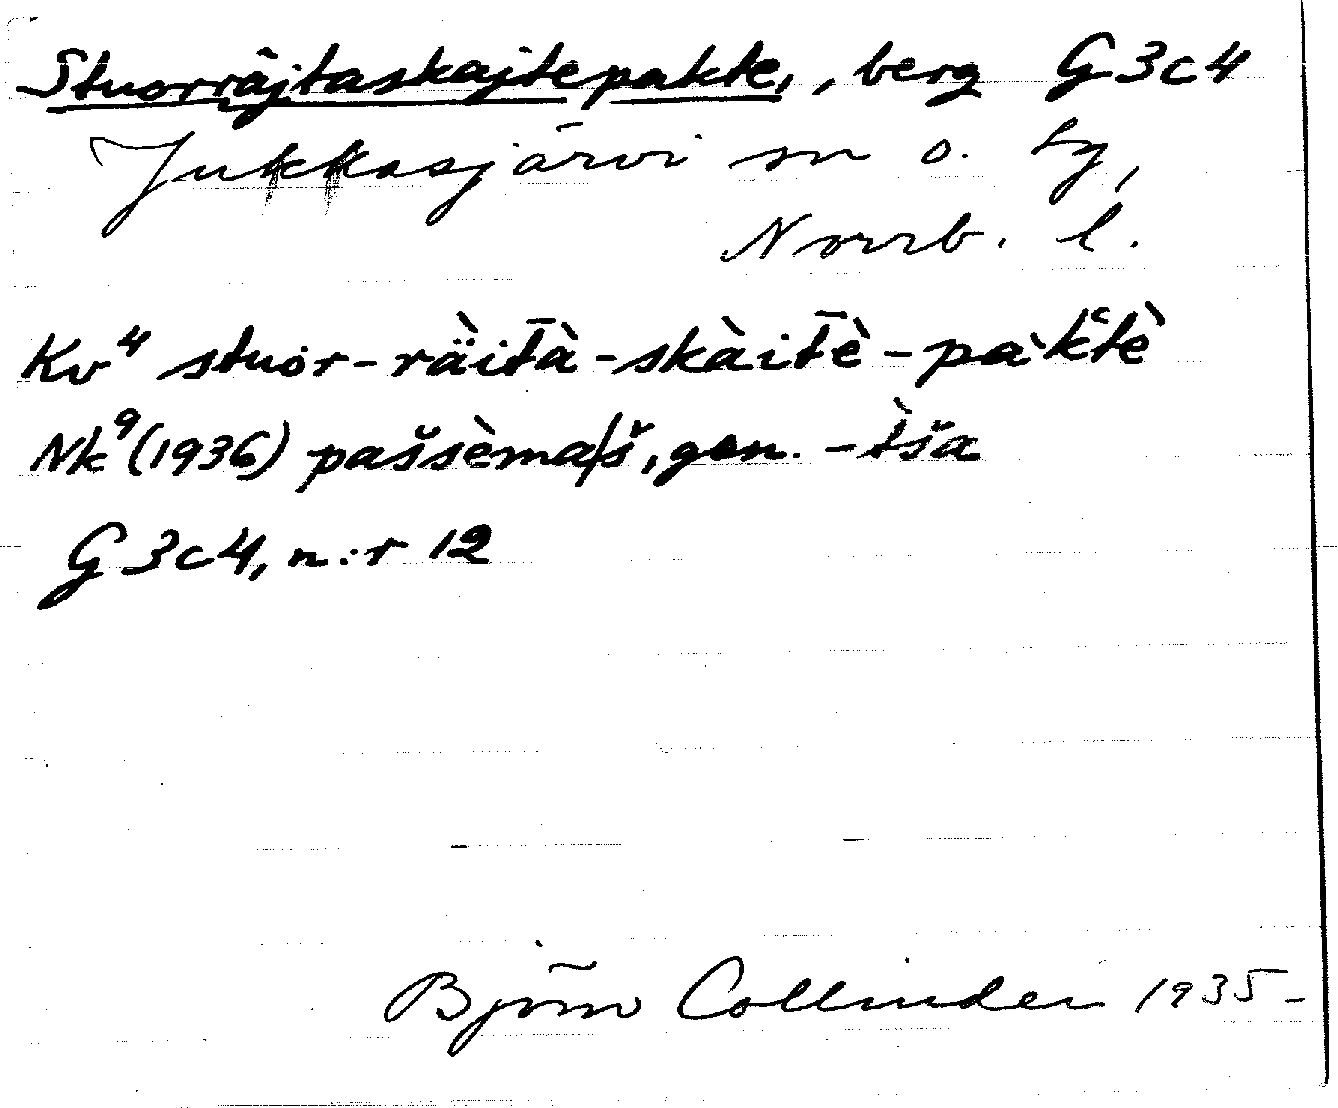 Stuorräjtaskajtepakte, , berg G3c4
Jukkasjärvi sn o. tg,
Norrb. l.
Kv⁴ stuor-räìt̄à-skàit̄è-pàkᶜtè
Nk⁹ (1936) pašsèma/š, gen. -t̀ša
G3c4, n:r 12
Björn Collinder 1935-